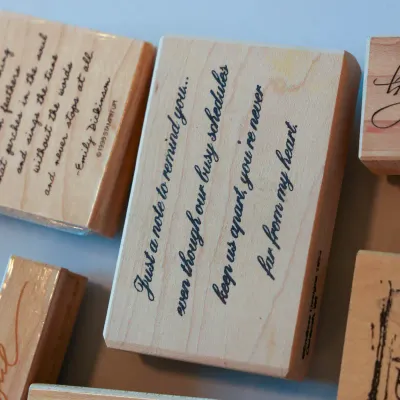 feathers
that perches in the soul
and sings the tune
without the words
and never stops at all.
-Emily Dickinson
Just a note to remind you...
even though our busy schedules
keep us apart, you're never
far from my heart.